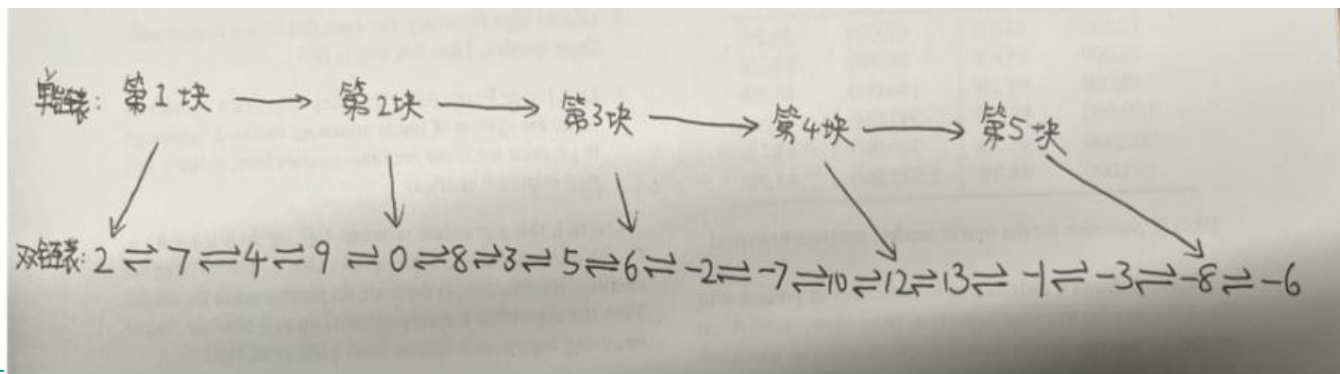 单链表: 第1块 → 第2块 → 第3块 → 第4块 → 第5块
双链表: 2 ⇌ 7 ⇌ 4 ⇌ 9 ⇌ 0 ⇌ 8 ⇌ 3 ⇌ 5 ⇌ 6 ⇌ -2 ⇌ -7 ⇌ 10 ⇌ 12 ⇌ 13 ⇌ -1 ⇌ -3 ⇌ -8 ⇌ -6